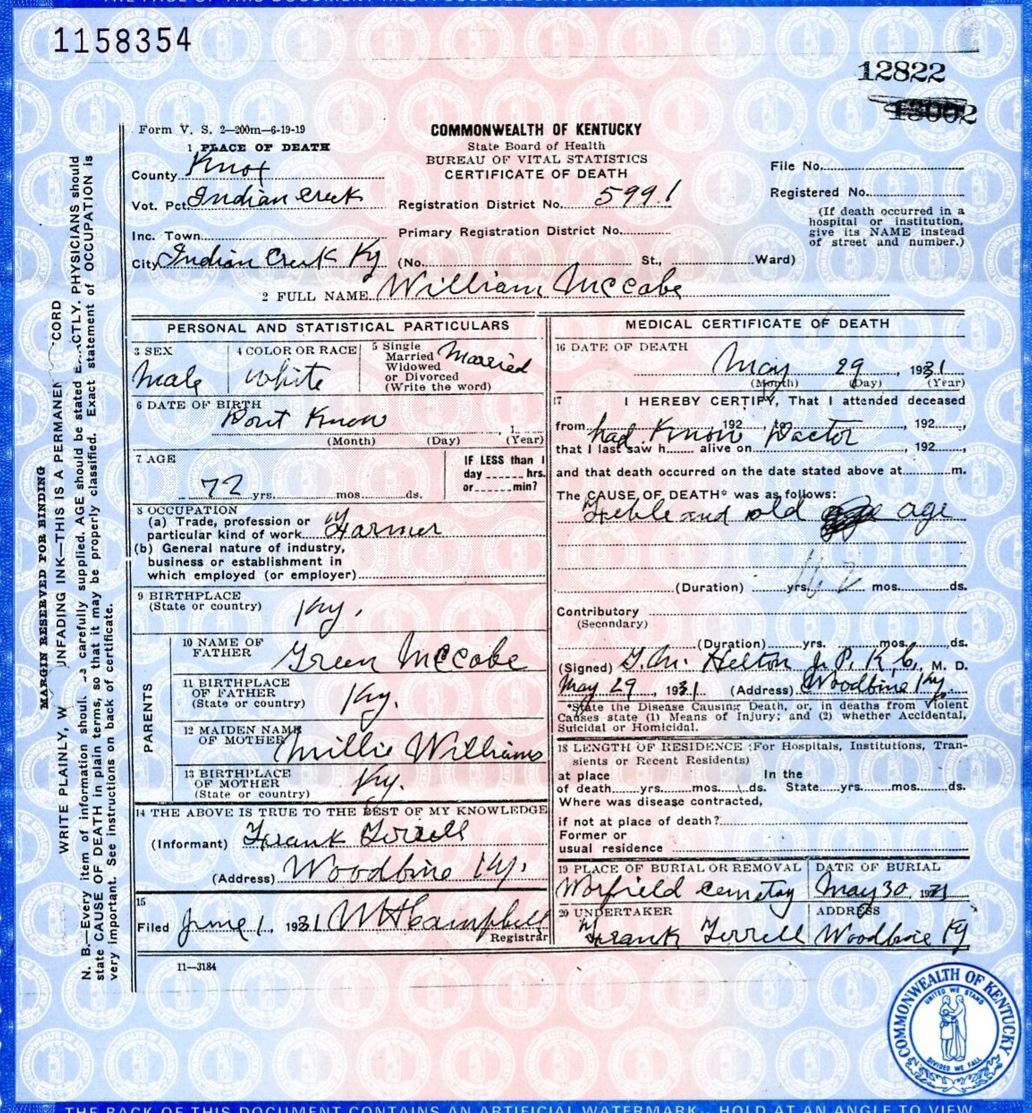 1158354
12822
13002
Form V. S. 2—200m—6-19-19
COMMONWEALTH OF KENTUCKY
State Board of Health
BUREAU OF VITAL STATISTICS
CERTIFICATE OF DEATH
1 PLACE OF DEATH
County Knox
Vot. Pct Indian Creek
Registration District No. 5991
Inc. Town
Primary Registration District No.
City Indian Creek Ky (No. St., Ward)
File No.
Registered No.
(If death occurred in a
hospital or institution,
give its NAME instead
of street and number.)
2 FULL NAME William Mccabe
PERSONAL AND STATISTICAL PARTICULARS
3 SEX
Male
4 COLOR OR RACE
White
5 Single
Married
Widowed
or Divorced
(Write the word)
Married
6 DATE OF BIRTH
Dont Know
(Month) (Day) 1 (Year)
7 AGE
72 yrs. mos. ds.
IF LESS than 1
day hrs.
or min?
8 OCCUPATION
(a) Trade, profession or
particular kind of work Farmer
(b) General nature of industry,
business or establishment in
which employed (or employer)
9 BIRTHPLACE
(State or country)
Ky.
PARENTS
10 NAME OF
FATHER
Green Mccabe
11 BIRTHPLACE
OF FATHER
(State or country)
Ky.
12 MAIDEN NAME
OF MOTHER
Millie Williams
13 BIRTHPLACE
OF MOTHER
(State or country)
Ky.
14 THE ABOVE IS TRUE TO THE BEST OF MY KNOWLEDGE
(Informant) Frank Terrell
(Address) Woodbine Ky.
15
Filed June 1, 1931 W H Campbell
Registrar
11—3184
MEDICAL CERTIFICATE OF DEATH
16 DATE OF DEATH
May 29, 1931
(Month) (Day) (Year)
17 I HEREBY CERTIFY, That I attended deceased
from 192 , to , 192 ,
had Know Doctor
that I last saw h alive on , 192 ,
and that death occurred on the date stated above at m.
The CAUSE OF DEATH* was as follows:
Feble and old age
(Duration) yrs. mos. ds.
Contributory
(Secondary)
(Duration) yrs. mos. ds.
(Signed) Helton J. P. K C, M. D.
May 29, 1931 (Address) Woodbine Ky.
*State the Disease Causing Death, or, in deaths from Violent
Causes state (1) Means of Injury; and (2) whether Accidental,
Suicidal or Homicidal.
18 LENGTH OF RESIDENCE (For Hospitals, Institutions, Tran-
sients or Recent Residents)
at place In the
of death yrs. mos. ds. State yrs. mos. ds.
Where was disease contracted,
if not at place of death?
Former or
usual residence
19 PLACE OF BURIAL OR REMOVAL
cemetay
DATE OF BURIAL
May 30, 1931
20 UNDERTAKER
Frank Terrell
ADDRESS
Woodbine Ky
MARGIN RESERVED FOR BINDING
WRITE PLAINLY, W UNFADING INK—THIS IS A PERMANEN CORD
N. B.—Every item of information shoul carefully supplied. AGE should be stated E CTLY. PHYSICIANS should
state CAUSE OF DEATH in plain terms, so that it may be properly classified. Exact statement of OCCUPATION is
very important. See instructions on back of certificate.
COMMONWEALTH OF KENTUCKY
UNITED WE STAND
DIVIDED WE FALL
THE BACK OF THIS DOCUMENT CONTAINS AN ARTIFICIAL WATERMARK. HOLD AT AN ANGLE TO